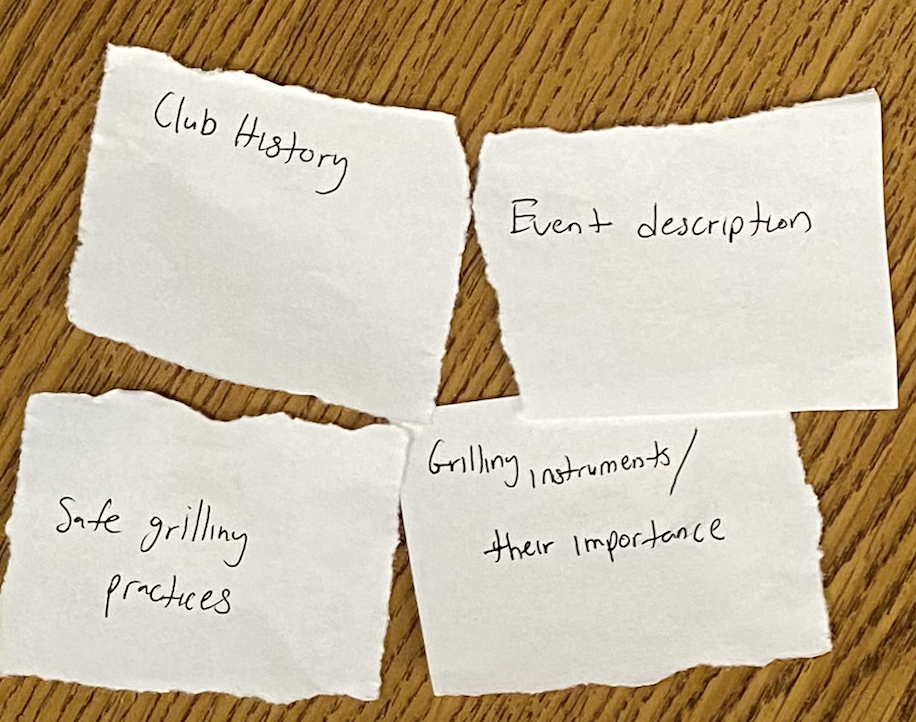 Club History
Event description
Safe grilling
practices
Grilling instruments/
their importance